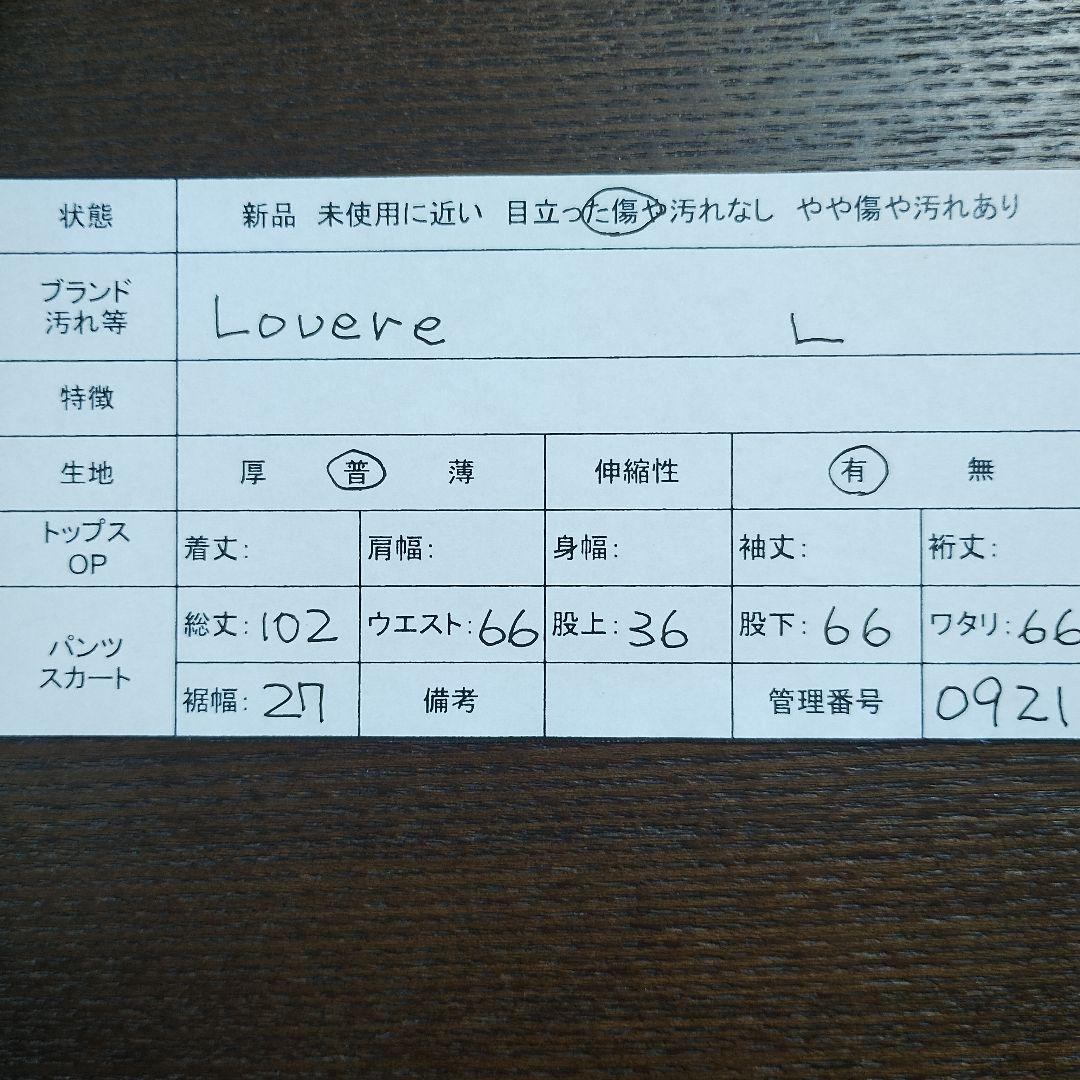 状態 新品 未使用に近い 目立った傷や汚れなし やや傷や汚れあり
ブランド
汚れ等 Lovere L
特徴
生地 厚 普 薄 伸縮性 有 無
トップス
OP 着丈: 肩幅: 身幅: 袖丈: 裄丈:
パンツ
スカート 総丈:102 ウエスト:66 股上:36 股下:66 ワタリ:66
裾幅:27 備考 管理番号 0921